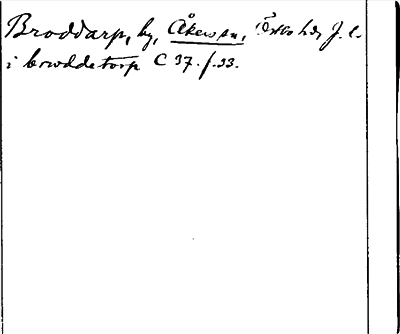 Broddarp, by, Åkers sn, Östbo hd, J. l.
i broddetorp C 37. f. 33.